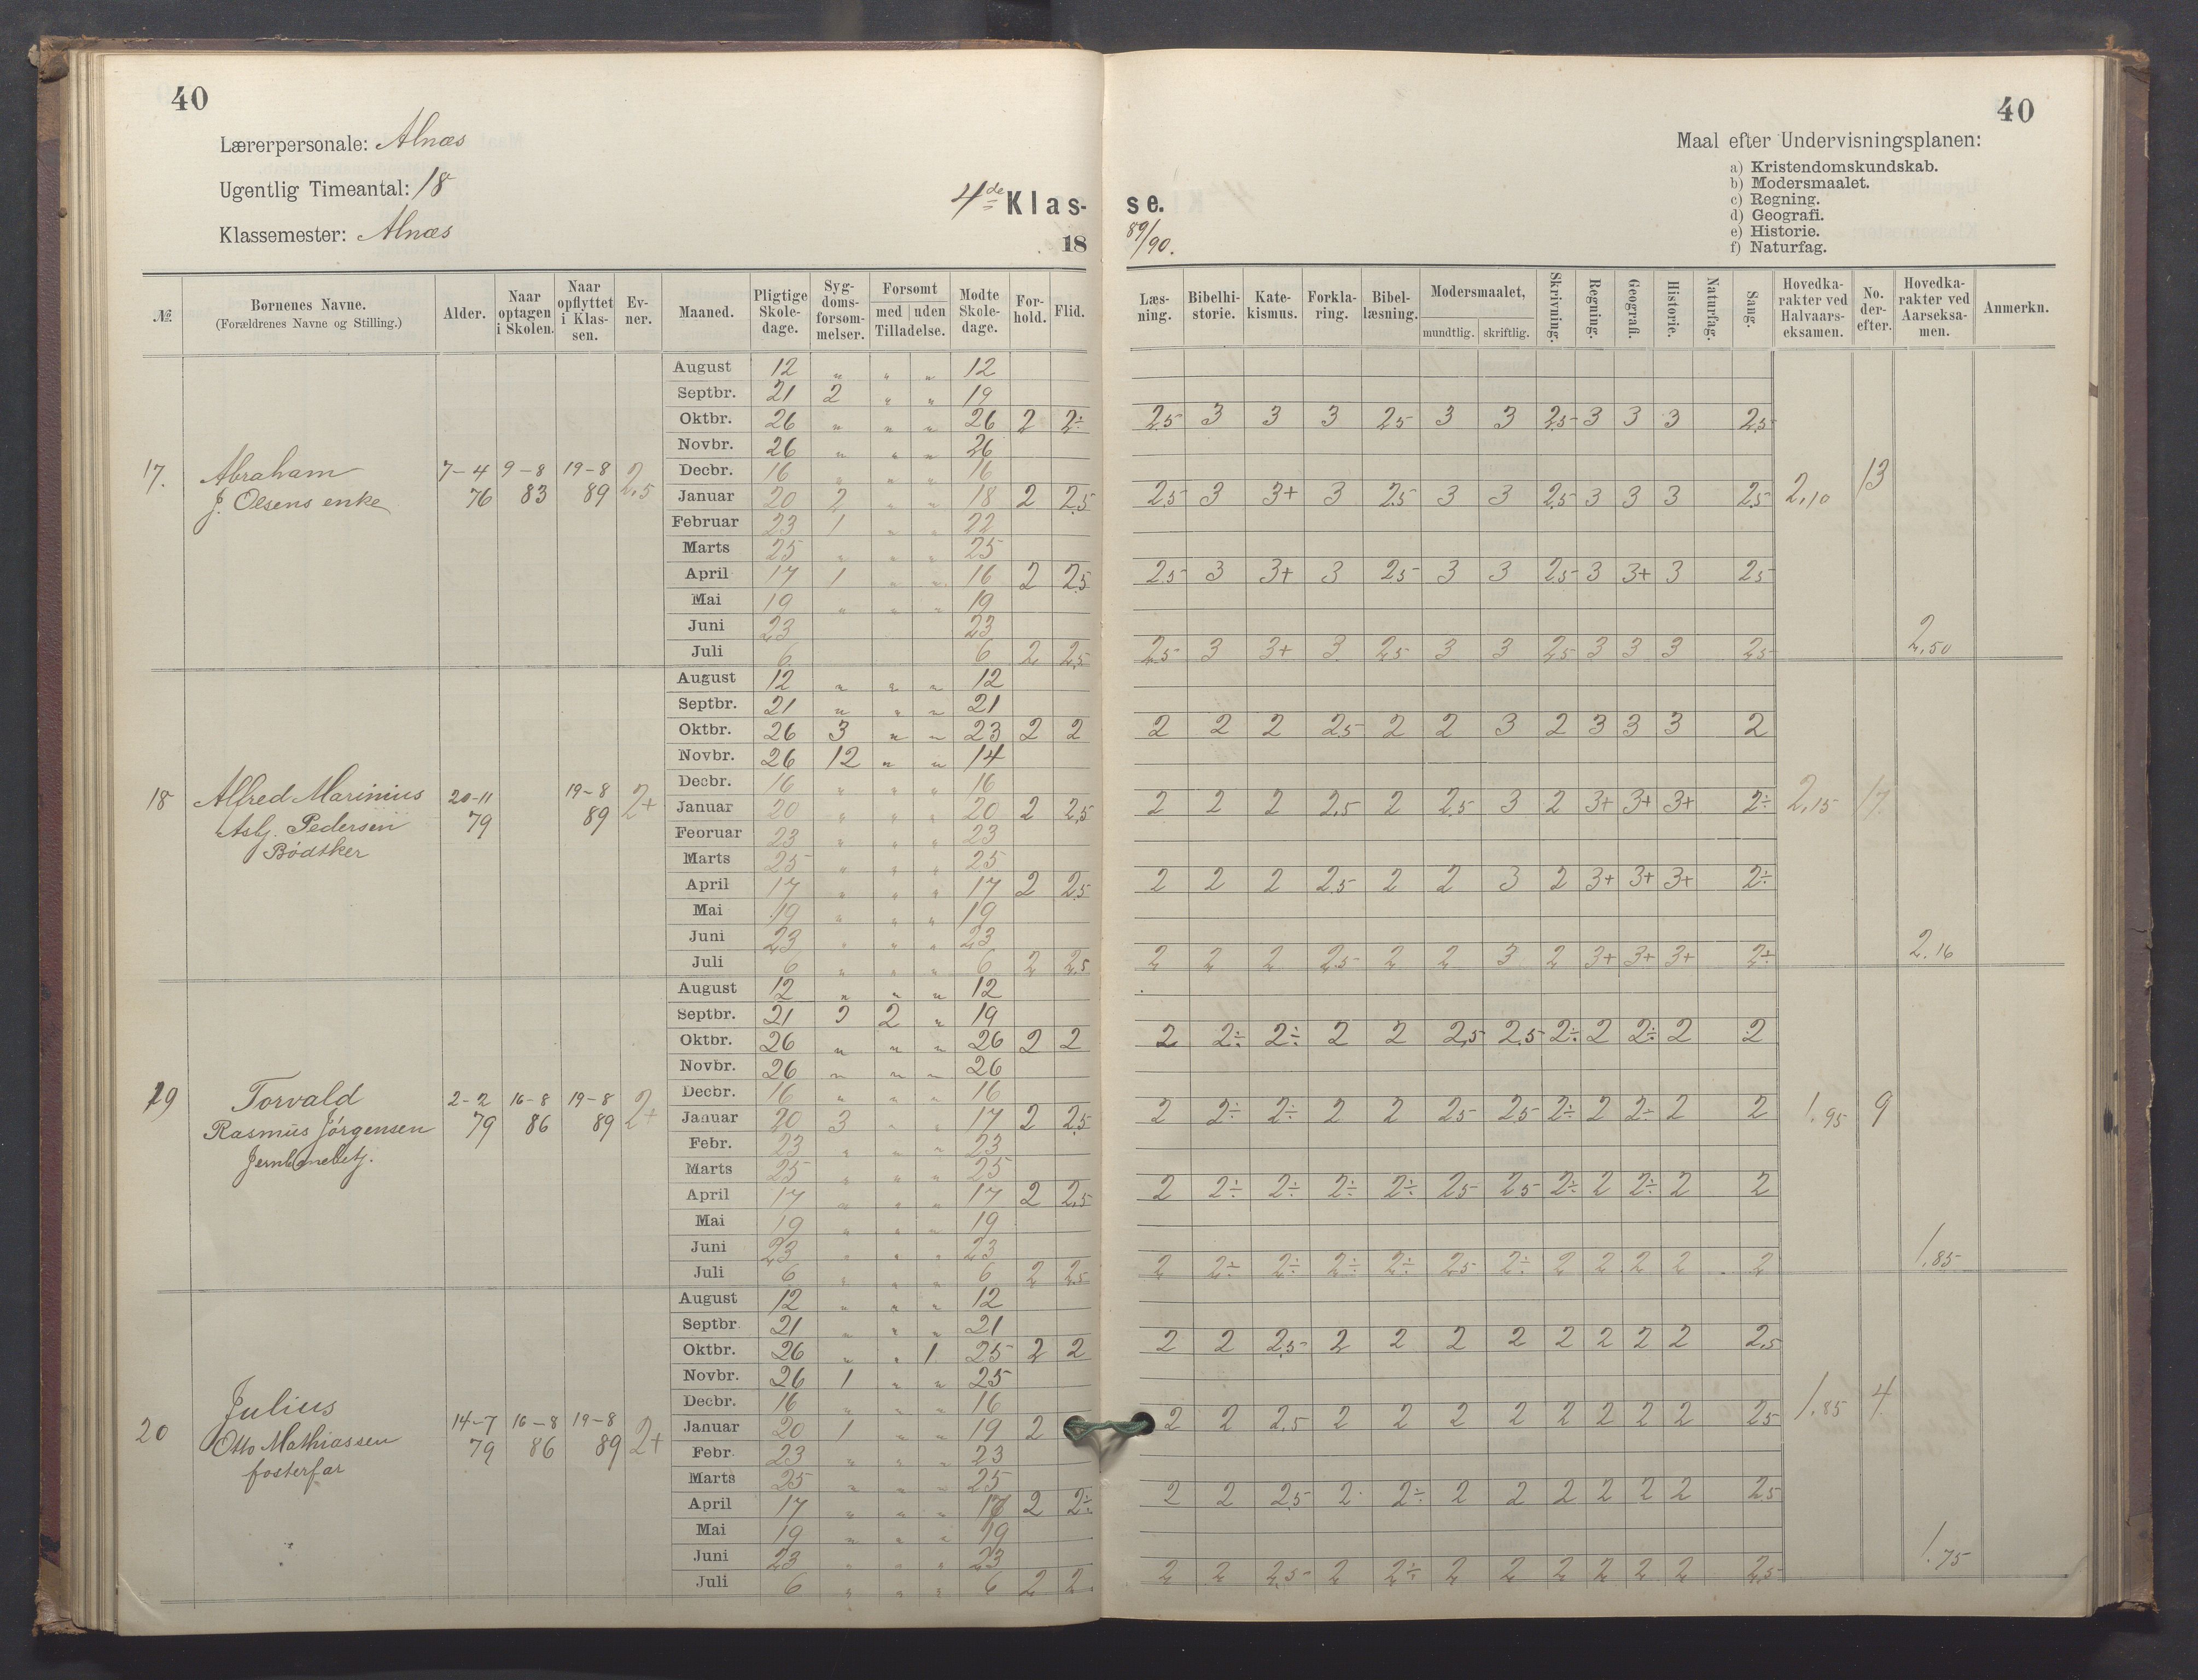 40
Lærerpersonale: Alnæs
Ugentlig Timeantal: 18
Klassemester: Alnæs
4de Klas-
18
№
Børnenes Navne. (Forældrenes Navne og Stilling.)
Alder.
Naar optagen i Skolen.
Naar opflyttet i Klas- sen.
Ev- ner.
Maaned.
Pligtige Skole- dage.
Syg- doms- forsøm- melser.
Forsømt med | uden Tilladelse.
Mødte Skole- dage.
For- hold.
Flid.
17. Abraham J. Olsens enke 7-4 76 9-8 83 19-8 89 2,5
August 12 " " " 12
Septbr. 21 2 " " 19
Oktbr. 26 " " " 26 2 2÷
Novbr. 26 " " " 26
Decbr. 16 " " " 16
Januar 20 2 " " 18 2 2,5
Februar 23 1 " " 22
Marts 25 " " " 25
April 17 1 " " 16 2 2,5
Mai 19 " " " 19
Juni 23 23
Juli 6 6 2 2,5
18 Alfred Marinius Asbj. Pedersen Bødtker 20-11 79 19-8 89 2+
August 12 " " " 12
Septbr. 21 " " " 21
Oktbr. 26 3 " " 23 2 2
Novbr. 26 12 " " 14
Decbr. 16 " " " 16
Januar 20 " " " 20 2 2,5
Februar 23 " " " 23
Marts 25 " " " 25
April 17 " " " 17 2 2,5
Mai 19 " " " 19
Juni 23 " " " 23
Juli 6 " " " 6 2 2,5
19 Torvald Rasmus Jørgensen Jernbanebetj. 2-2 79 16-8 86 19-8 89 2+
August 12 " " " 12
Septbr. 21 2 " 19
Oktbr. 26 " " " 26 2 2
Novbr. 26 " " " 26
Decbr. 16 " " " 16
Januar 20 3 " " 17 2 2,5
Febr. 23 " " " 23
Marts 25 " " " 25
April 17 " " " 17 2 2,5
Mai 19 " " " 19
Juni 23 " " " 23
Juli 6 " " " 6 2 2,5
20 Julius Otto Mathiassen fosterfar 14-7 79 16-8 86 19-8 89 2+
August 12 " " " 12
Septbr. 21 " " " 21
Oktbr. 26 " " 1 25 2 2
Novbr. 26 1 " " 25
Decbr. 16 " " " 16
Januar 20 1 " " 19 2
Febr. 23 " " " 23
Marts 25 " " " 25
April 17 " " " 2 2÷
Mai 19 " " " 19
Juni 23 " " " 23
Juli 6 " " " 6 2 2
40
Maal efter Undervisningsplanen:
a) Kristendomskundskab.
b) Modersmaalet.
c) Regning.
d) Geografi.
e) Historie.
f) Naturfag.
se.
89/90.
Læs- ning.
Bibelhi- storie.
Kate- kismus.
Forkla- ring.
Bibel- læsning.
Modersmaalet, mundtlig. | skriftlig.
Skrivning.
Regning.
Geografi.
Historie.
Naturfag.
Sang.
Hovedka- rakter ved Halvaars- eksamen.
No. der- efter.
Hovedka- rakter ved Aarseksa- men.
Anmerkn.
2,5 3 3 3 2,5 3 3 2,5 3 3 3 2,5
2,5 3 3+ 3 2,5 3 3 2,5 3 3 3 2,5 2,10 13
2,5 3 3+ 3 2,5 3 3 2,5 3 3+ 3 2,5
2,5 3 3+ 3 2,5 3 3 2,5 3 3 3 2,5 2,50
2 2 2 2,5 2 2 3 2 3 3 3 2
2 2 2 2,5 2 2,5 3 2 3+ 3+ 3+ 2÷ 2,15 17.
2 2 2 2,5 2 2 3 2 3+ 3+ 3+ 2÷
2 2 2 2,5 2 2 3 2 3+ 3+ 3+ 2÷ 2.16
2 2÷ 2÷ 2 2 2,5 2,5 2÷ 2 2÷ 2 2
2 2÷ 2÷ 2 2 2,5 2,5 2÷ 2 2÷ 2 2 1.95 9
2 2÷ 2÷ 2÷ 2÷ 2,5 2,5 2÷ 2 2÷ 2 2
2 2÷ 2÷ 2÷ 2÷ 2,5 2÷ 2 2 2 2 2 1.85
2 2 2,5 2 2 2 2 2 2 2 2 2,5
2 2 2,5 2 2 2 2 2 2 2 2 2,5 1.85 4
2 2 2,5 2 2÷ 2 2 2 2 2 2 2,5
2 2 2,5 2 2÷ 2 2 2 2 2 2 2,5 1.75